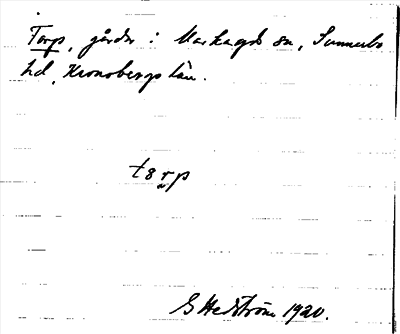 Torp, gårdar i Markaryds sn, Sunnerbo
hd, Kronobergs län.
tɜrp
G Hedström 1920.